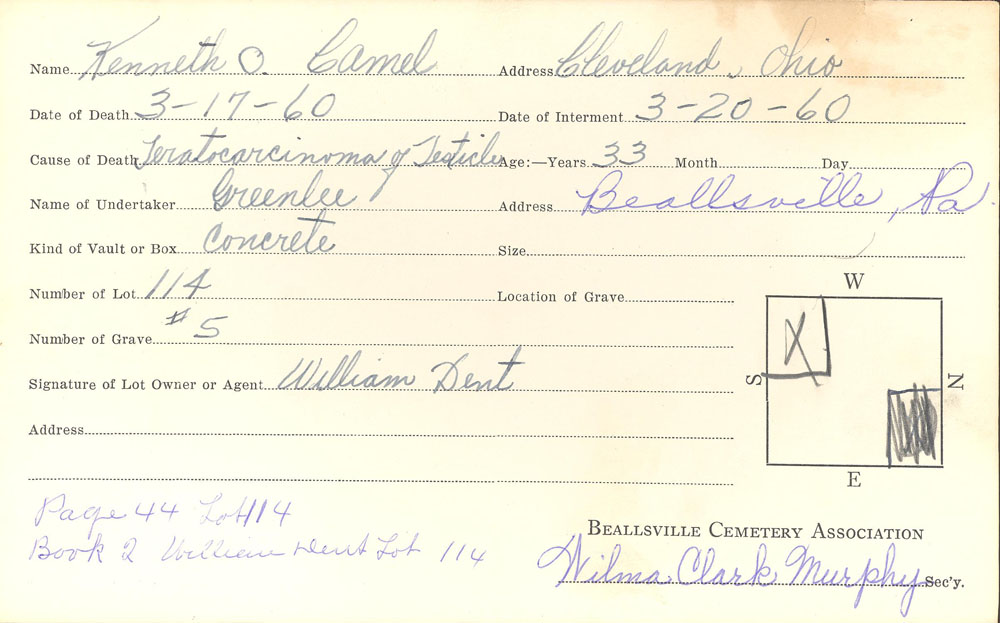 Name Kenneth O. Camel Address Cleveland, Ohio
Date of Death 3-17-60 Date of Interment 3-20-60
Cause of Death Teratocarcinoma of Testicle Age:—Years 33 Month Day
Name of Undertaker Greenlee Address Beallsville, Pa.
Kind of Vault or Box Concrete Size
Number of Lot 114 Location of Grave
Number of Grave #5
Signature of Lot Owner or Agent William Dent
Address
W
S X N
E
Page 44 Lot 114
Book 2 William Dent Lot 114
BEALLSVILLE CEMETERY ASSOCIATION
Wilma Clark Murphy Sec'y.